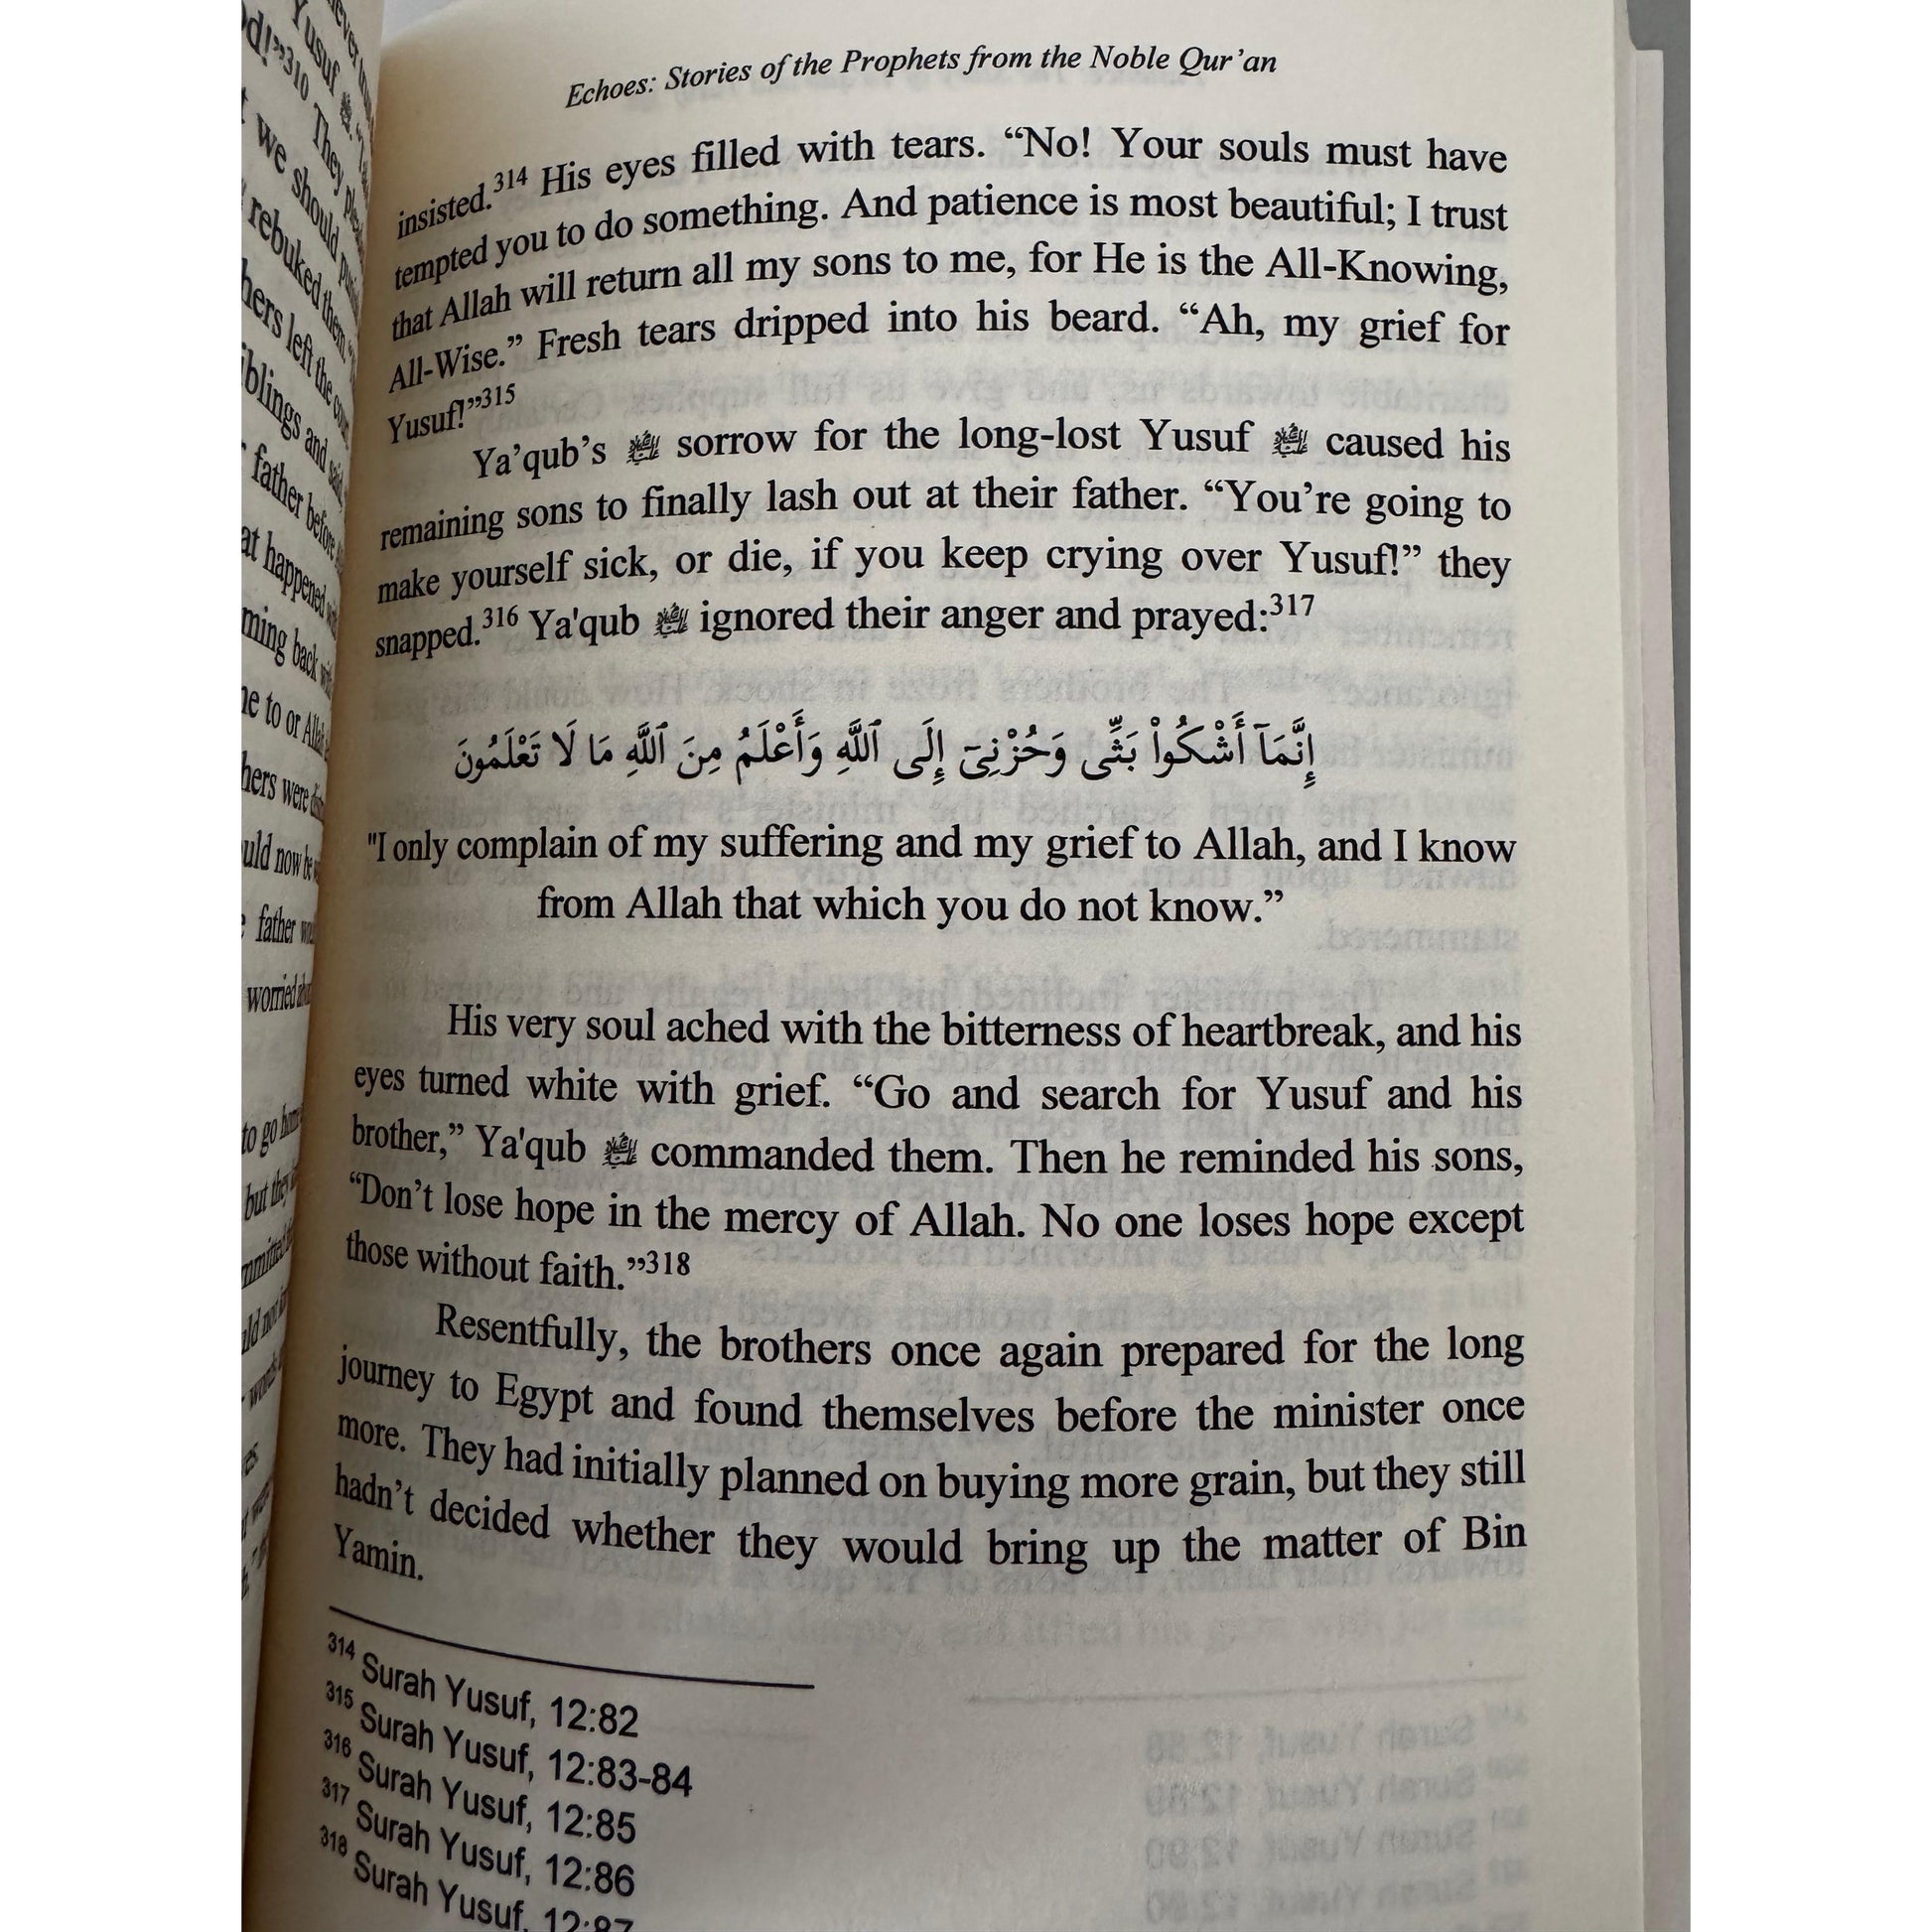 Echoes: Stories of the Prophets from the Noble Qur’an
insisted.314 His eyes filled with tears. “No! Your souls must have
tempted you to do something. And patience is most beautiful; I trust
that Allah will return all my sons to me, for He is the All-Knowing,
All-Wise.” Fresh tears dripped into his beard. “Ah, my grief for
Yusuf!”315
Ya’qub’s sorrow for the long-lost Yusuf caused his
remaining sons to finally lash out at their father. “You’re going to
make yourself sick, or die, if you keep crying over Yusuf!” they
snapped.316 Ya'qub ignored their anger and prayed:317
إِنَّمَآ أَشْكُوا۟ بَثِّى وَحُزْنِىٓ إِلَى ٱللَّهِ وَأَعْلَمُ مِنَ ٱللَّهِ مَا لَا تَعْلَمُونَ
"I only complain of my suffering and my grief to Allah, and I know
from Allah that which you do not know.”
His very soul ached with the bitterness of heartbreak, and his
eyes turned white with grief. “Go and search for Yusuf and his
brother,” Ya'qub commanded them. Then he reminded his sons,
“Don’t lose hope in the mercy of Allah. No one loses hope except
those without faith.”318
Resentfully, the brothers once again prepared for the long
journey to Egypt and found themselves before the minister once
more. They had initially planned on buying more grain, but they still
hadn’t decided whether they would bring up the matter of Bin
Yamin.
314 Surah Yusuf, 12:82
315 Surah Yusuf, 12:83-84
316 Surah Yusuf, 12:85
317 Surah Yusuf, 12:86
318 Surah Yusuf, 12:87